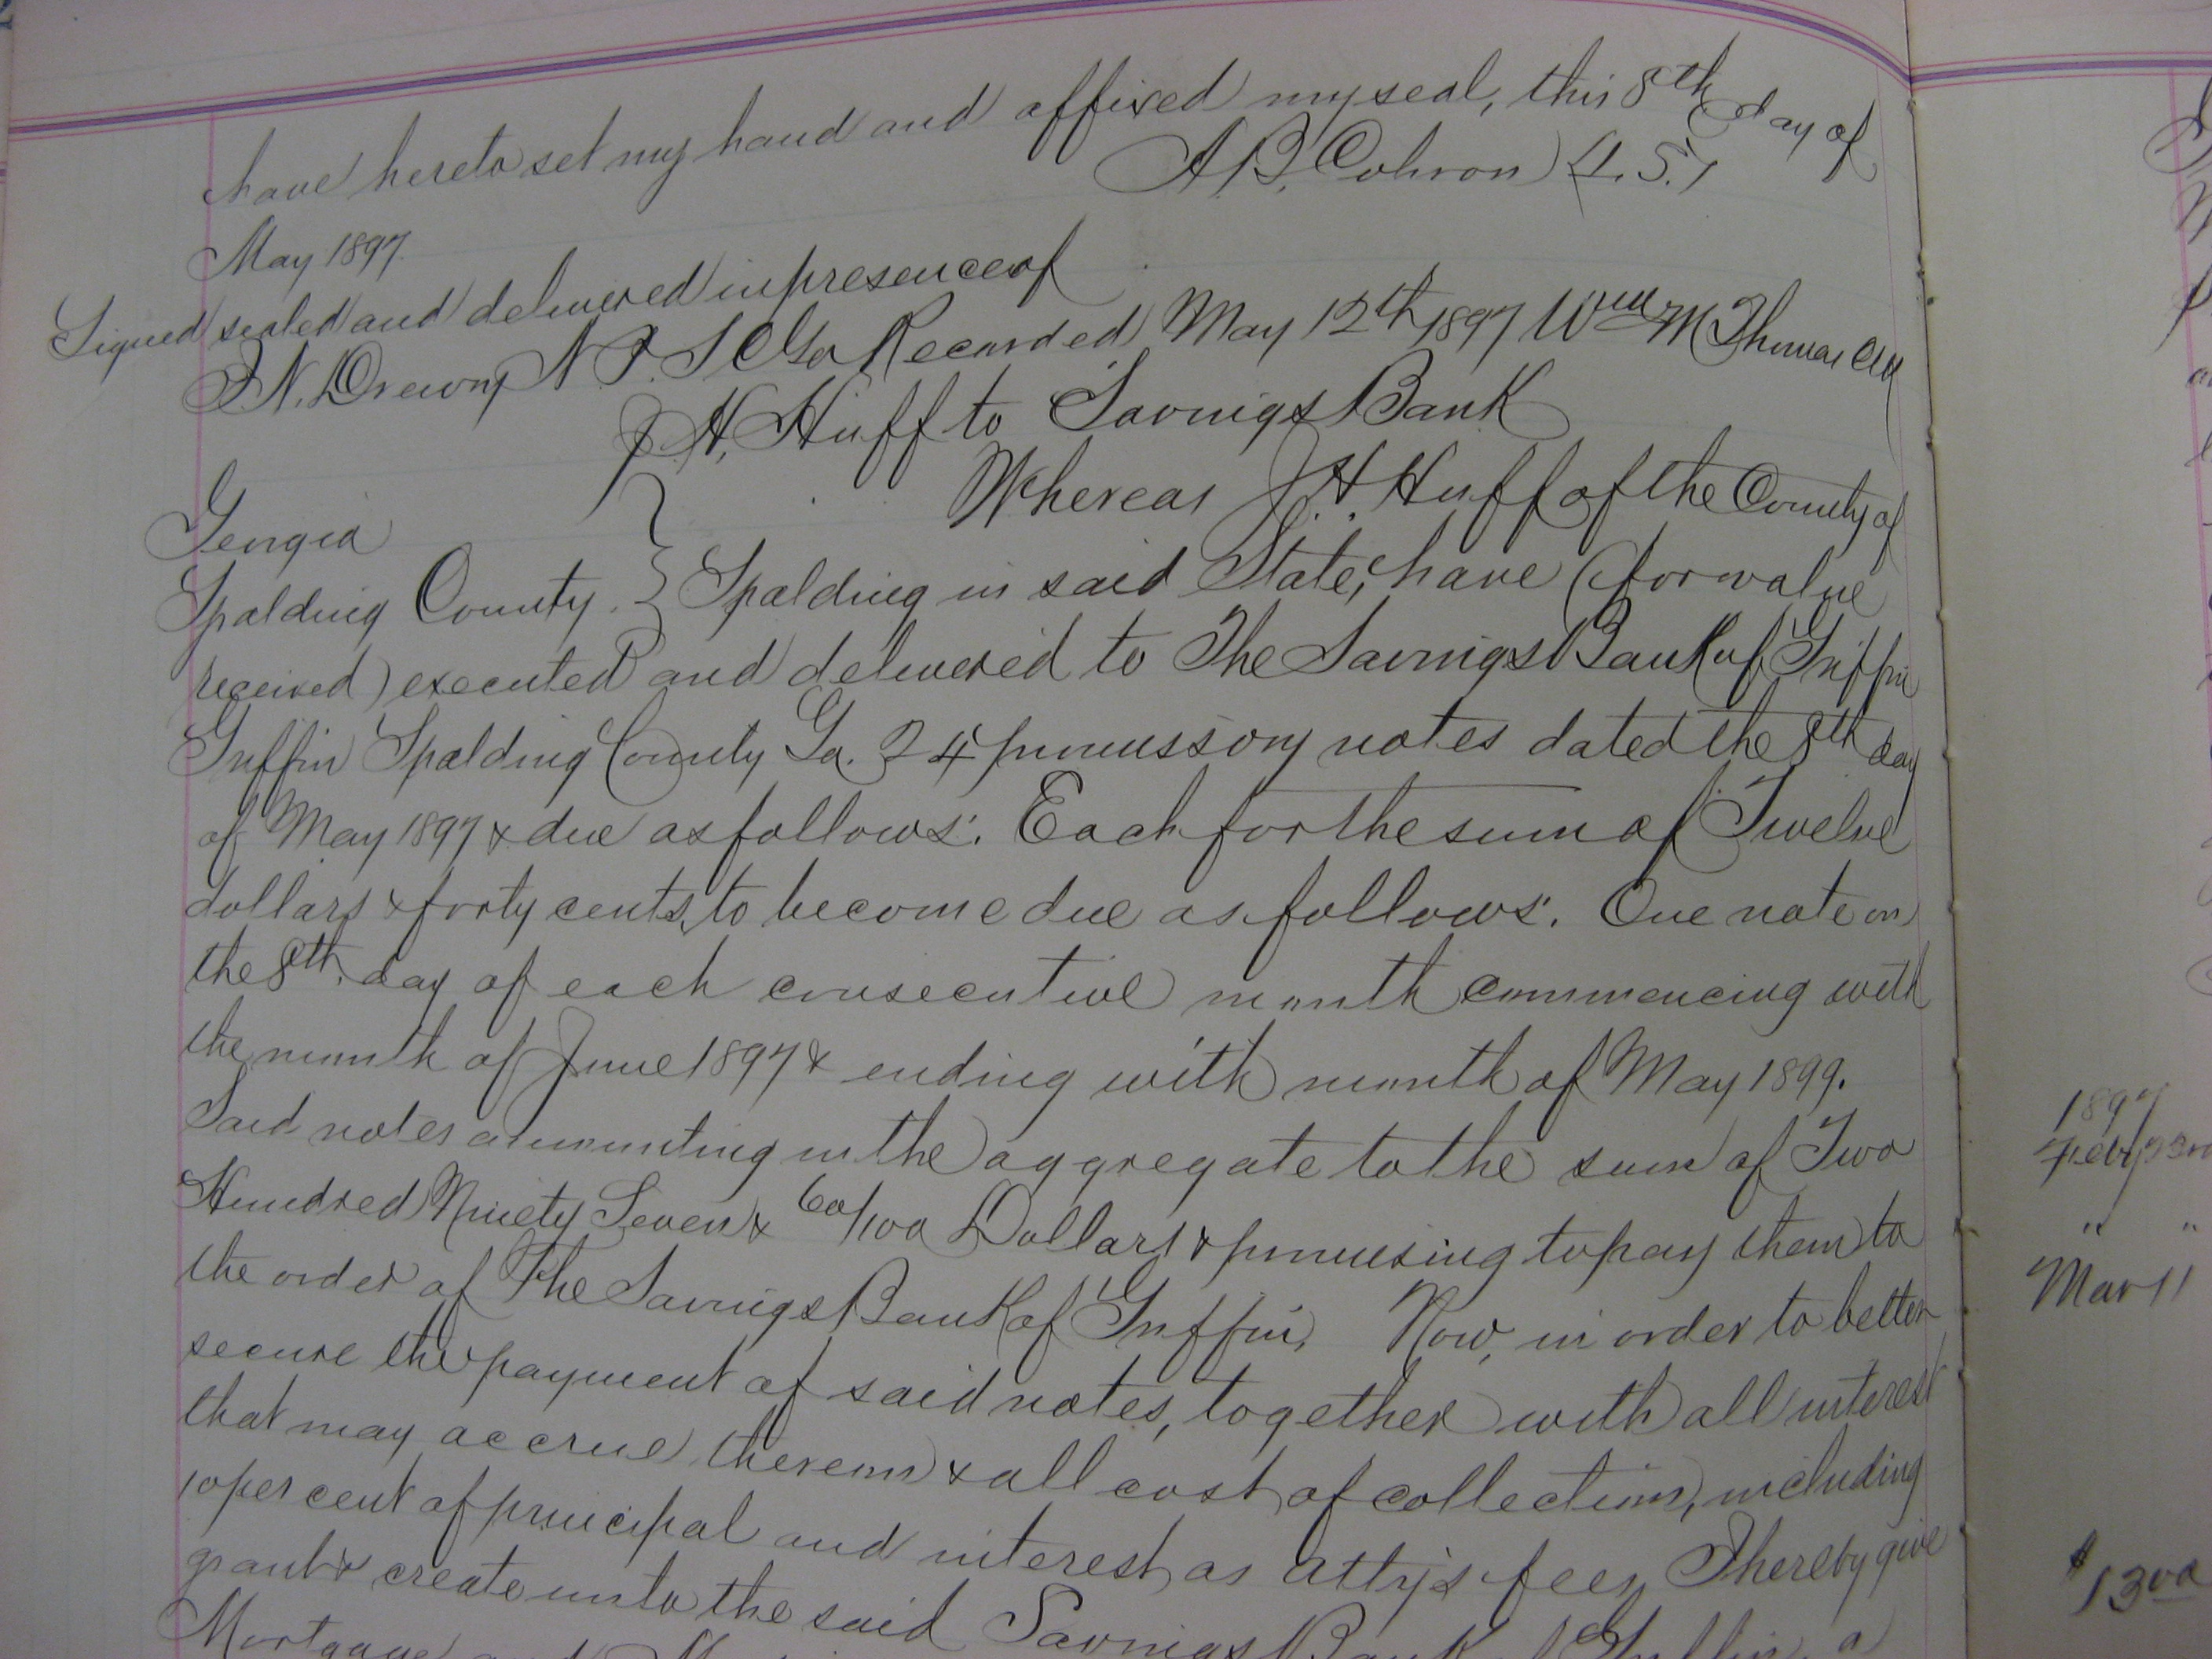 have hereto set my hand and affixed my seal, this 8th day of
May 1897. A. B. Cohron (L.S.)
Signed sealed and delivered in presence of
J. N. Drewry N P. S C Ga Recorded May 12th 1897 Wm M Thomas Clk
J. H. Huff to Savings Bank
Georgia
Spalding County. } Whereas J. H. Huff of the County of
Spalding in said State, have (for value
received) executed and delivered to The Savings Bank of Griffin
Griffin Spalding County Ga. 24 promissory notes dated the 8th day
of May 1897 & due as follows: Each for the sum of Twelve
dollars & forty cents, to become due as follows: One note on
the 8th day of each consecutive month commencing with
the month of June 1897 & ending with month of May 1899.
Said notes amounting in the aggregate to the sum of Two
Hundred Ninety Seven & 60/100 Dollars & promising to pay them to
the order of The Savings Bank of Griffin. Now, in order to better
secure the payment of said notes, together with all interest
that may accrue thereon & all cost of collection, including
10 per cent of principal and interest, as atty's fees, I hereby give
grant & create unto the said Savings Bank of Griffin, a
Mortgage and
1897
Feby
" "
Mar 11
$1300